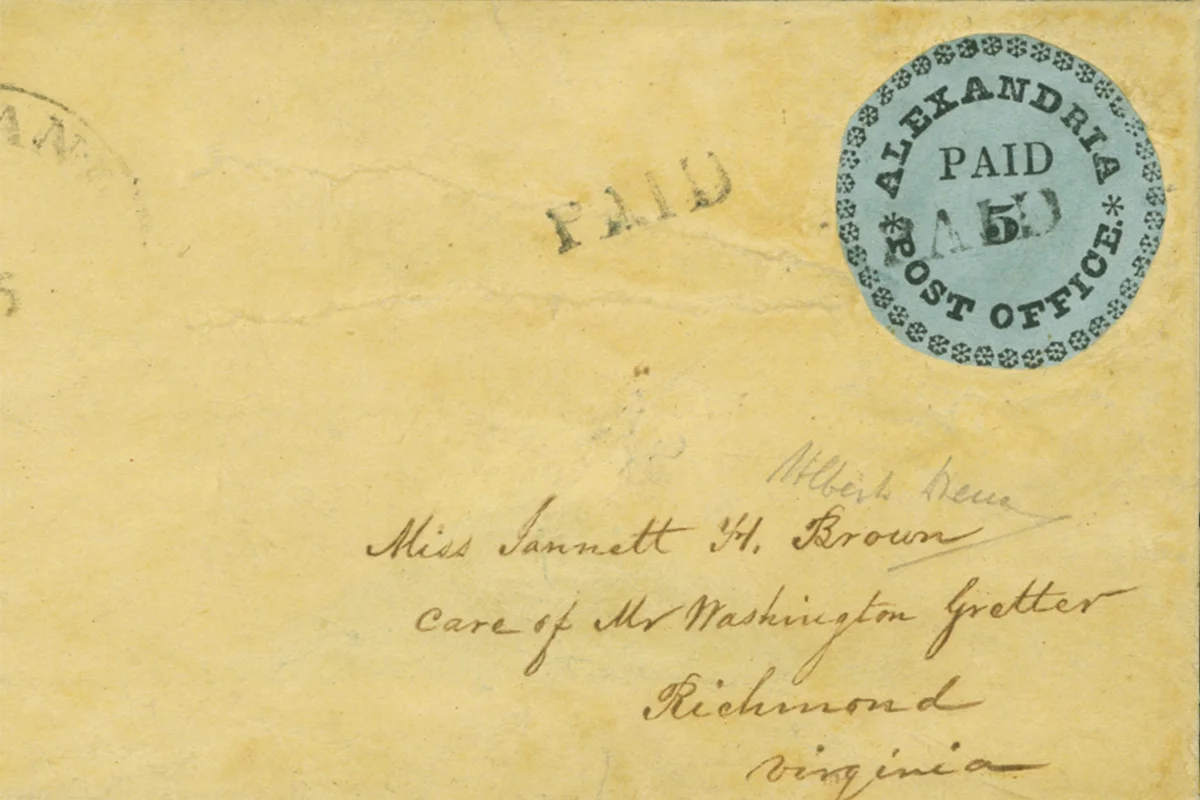 AN
5
PAID
ALEXANDRIA
PAID
PAID
5
* POST OFFICE. *
Miss Jannett H. Brown
care of Mr Washington Gretter
Richmond
virginia